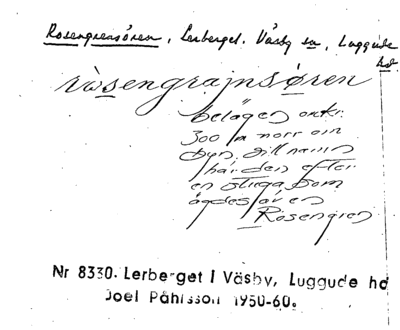 Rosengrensören, Lerberget. Väsby sn, Luggude
hd.
ròsengrajnsøren
belägen omkr.
300 m norr om
byn. Sitt namn
har den efter
en stuga, som
ägdes av en
Rosengren
Nr 8330. Lerberget i Väsby, Luggude hd
Joel Påhlsson 1950-60.